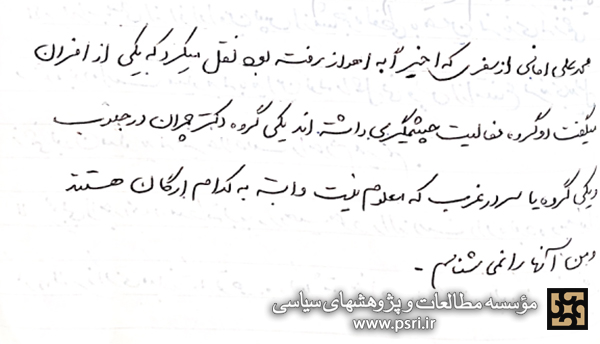 محمدعلی امانی از سفری که اخیراً به اهواز رفته بود نقل میکرد که یکی از افسران
میگفت دو گروه فعالیت چشمگیری داشته اند یکی گروه دکتر چمران در جنوب
و یکی گروه یاسر در غرب که معلوم نیست وابسته به کدام ارگان هستند
و من آنها را نمی شناسم -
مؤسسه مطالعات و پژوهشهای سیاسی
www.psri.ir